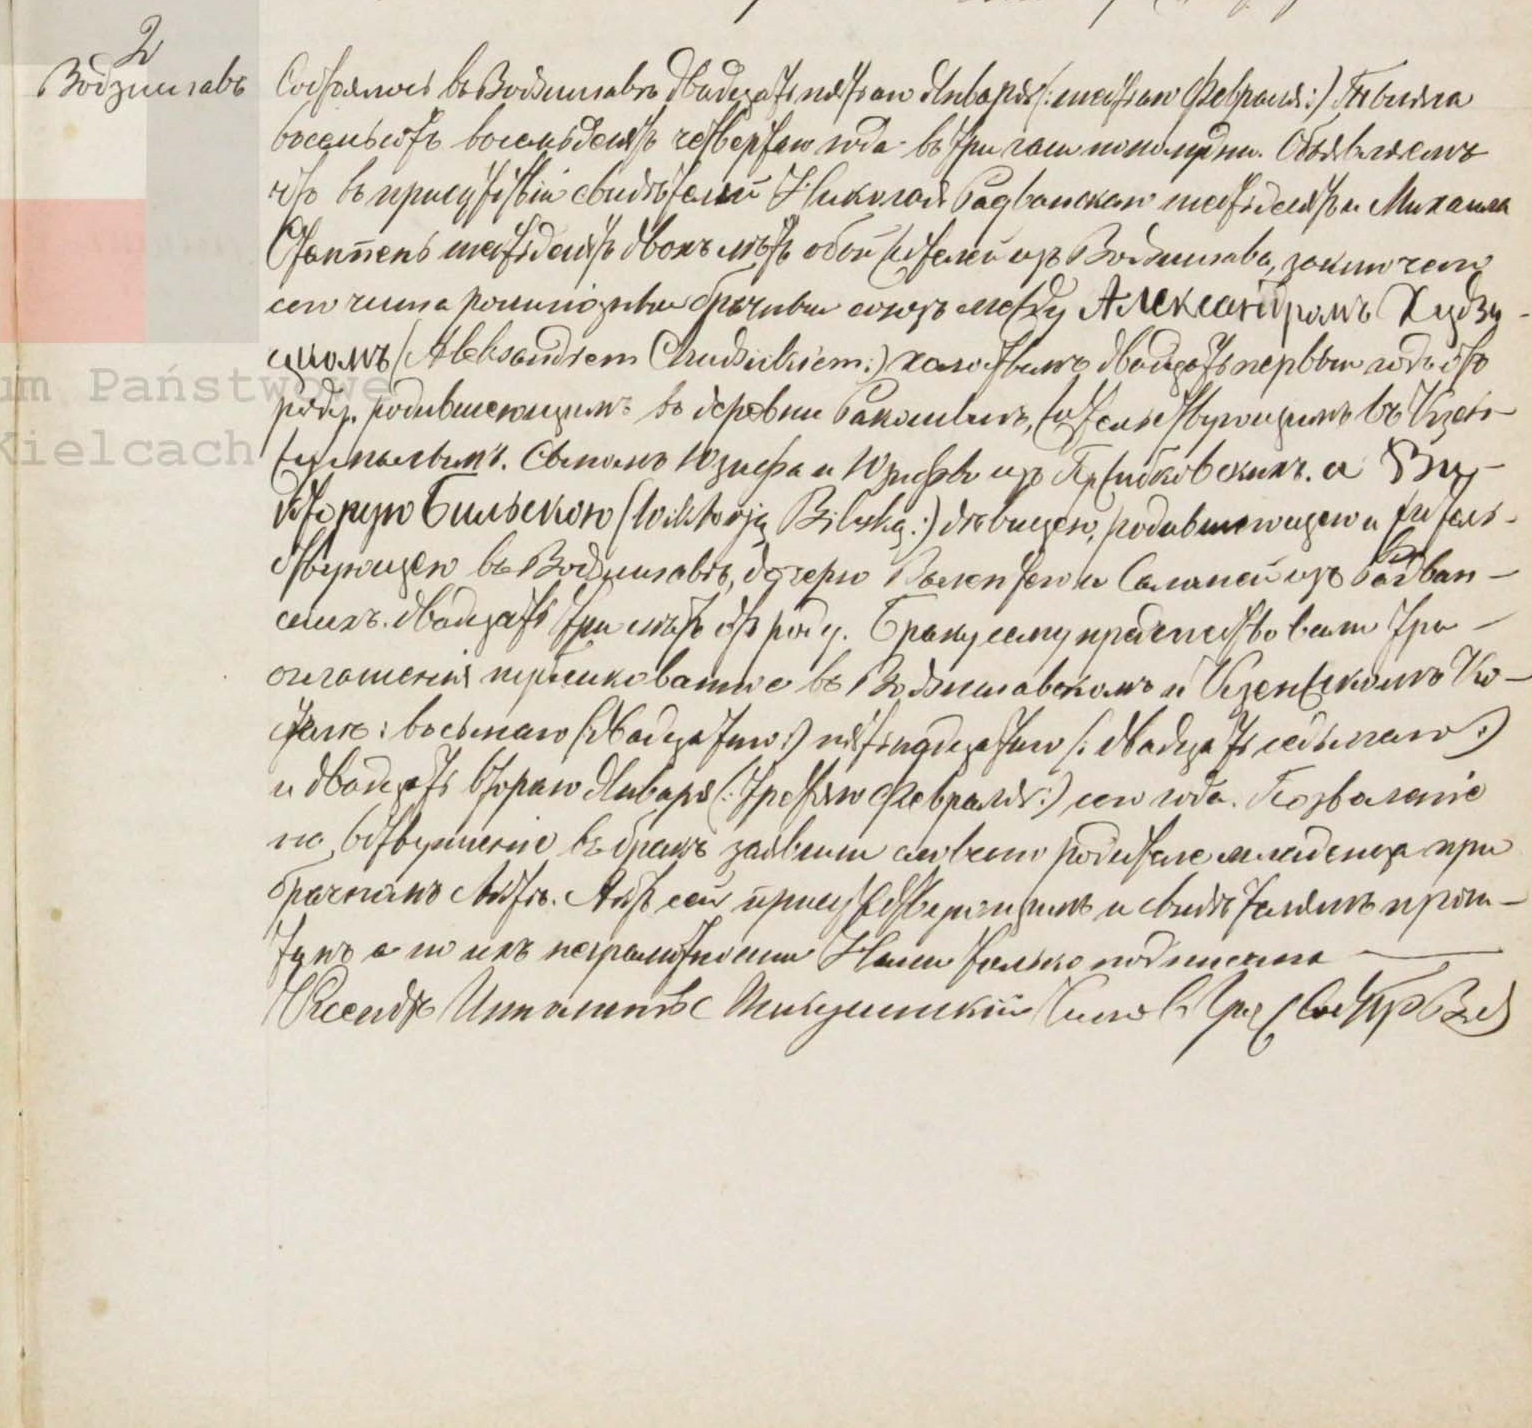 2
Водзиславъ
Состоялось въ Водзиславѣ двадцать пятаго Января (:шестаго Февраля:) Тысяча
восемьсотъ восемьдесятъ четвертаго года въ три часа пополудни. Объявляемъ
что въ присутствіи свидѣтелей Николая Радванскаго шестьдесятъ и Михаила
шестьдесятъ двохъ лѣтъ обой жителей изъ Водзислава, заключено
сего числа брачный союзъ между Александромъ Худзи-
цкимъ (Aleksandrem Chudzickiem:) холостымъ двадцать первый годъ отъ
роду, родившемущимъ въ деревни жительствующимъ въ
сыномъ Юзефа и Юзефы изъ а Ви-
кторую Бильскою (Wiktorją Bilską:) дѣвицею, родившеюущею и житель-
ствующею въ Водзиславѣ, дочерю Валентего и Саломеи изъ Радван-
скихъ. двадцать три лѣтъ отъ роду. Браку сему предшествовали три
оглашенія публикованные въ Водзиславскомъ и Ксенжскомъ Ко-
стелѣ: восьмаго (:двадцатаго:) пятнадцатаго (:двадцать седьмаго:)
и двадцать втораго Января (:третяго Февраля:) сего года. Позволеніе
на вступленіе въ бракъ заявили словесно родителе младенца при
брачномъ Актѣ. Актъ сей присутствующимъ и свидѣтелямъ прочи-
танъ а по ихъ неграмотности Нами только подписанъ
Ксендзъ
um Państwowe
Kielcach